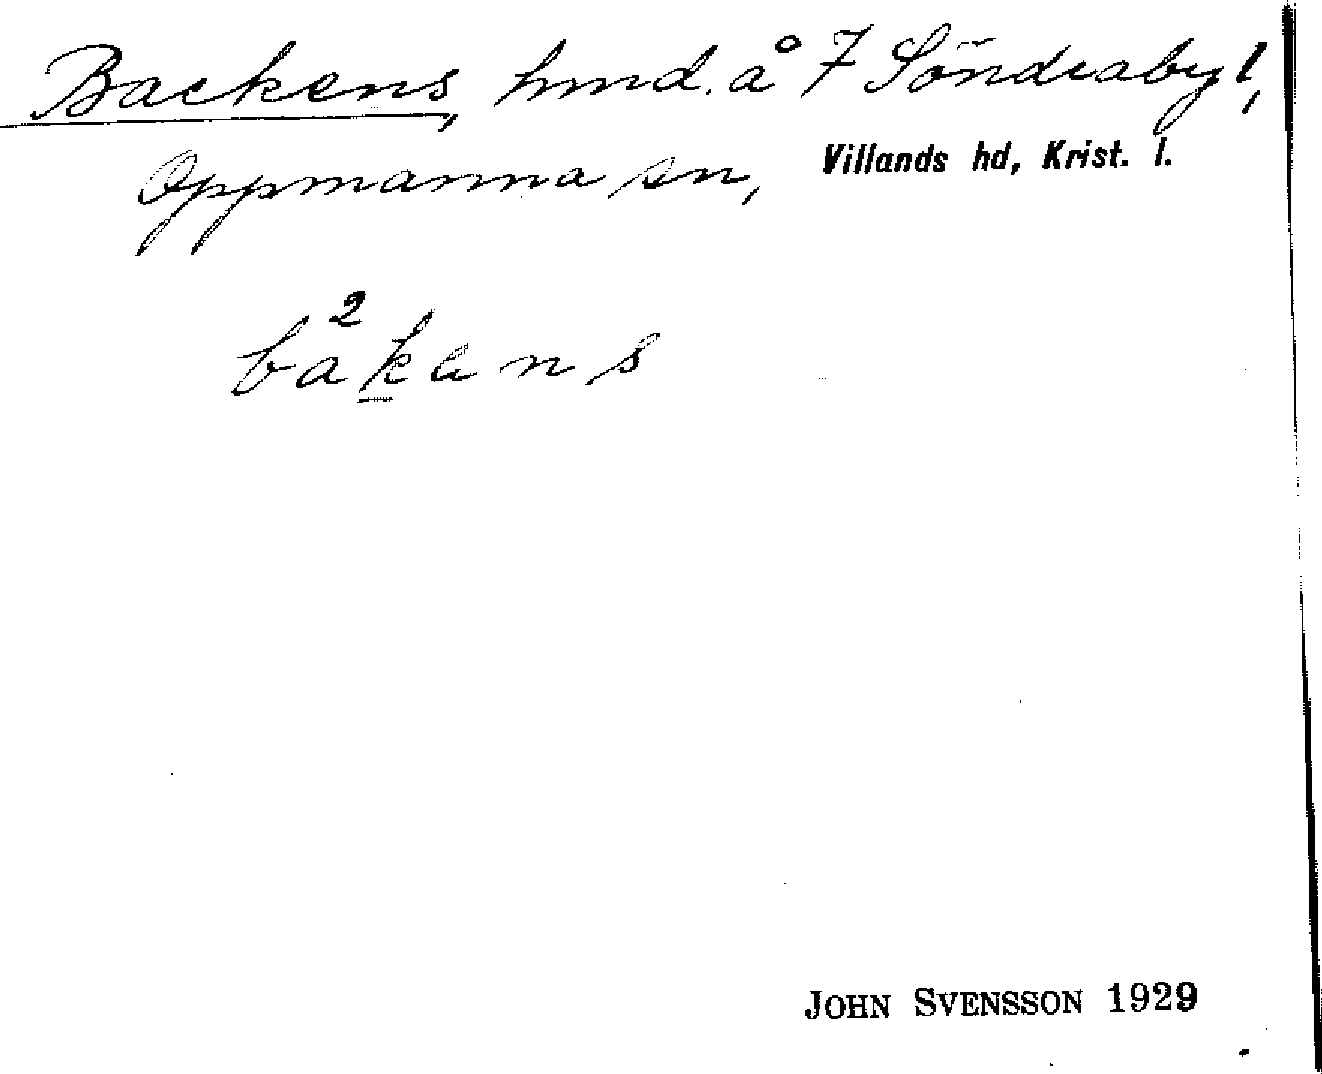 Backens, hmd. å 7 Söndraby 1,
Oppmanna sn, Villands hd, Krist. l.
ba²kans
JOHN SVENSSON 1929